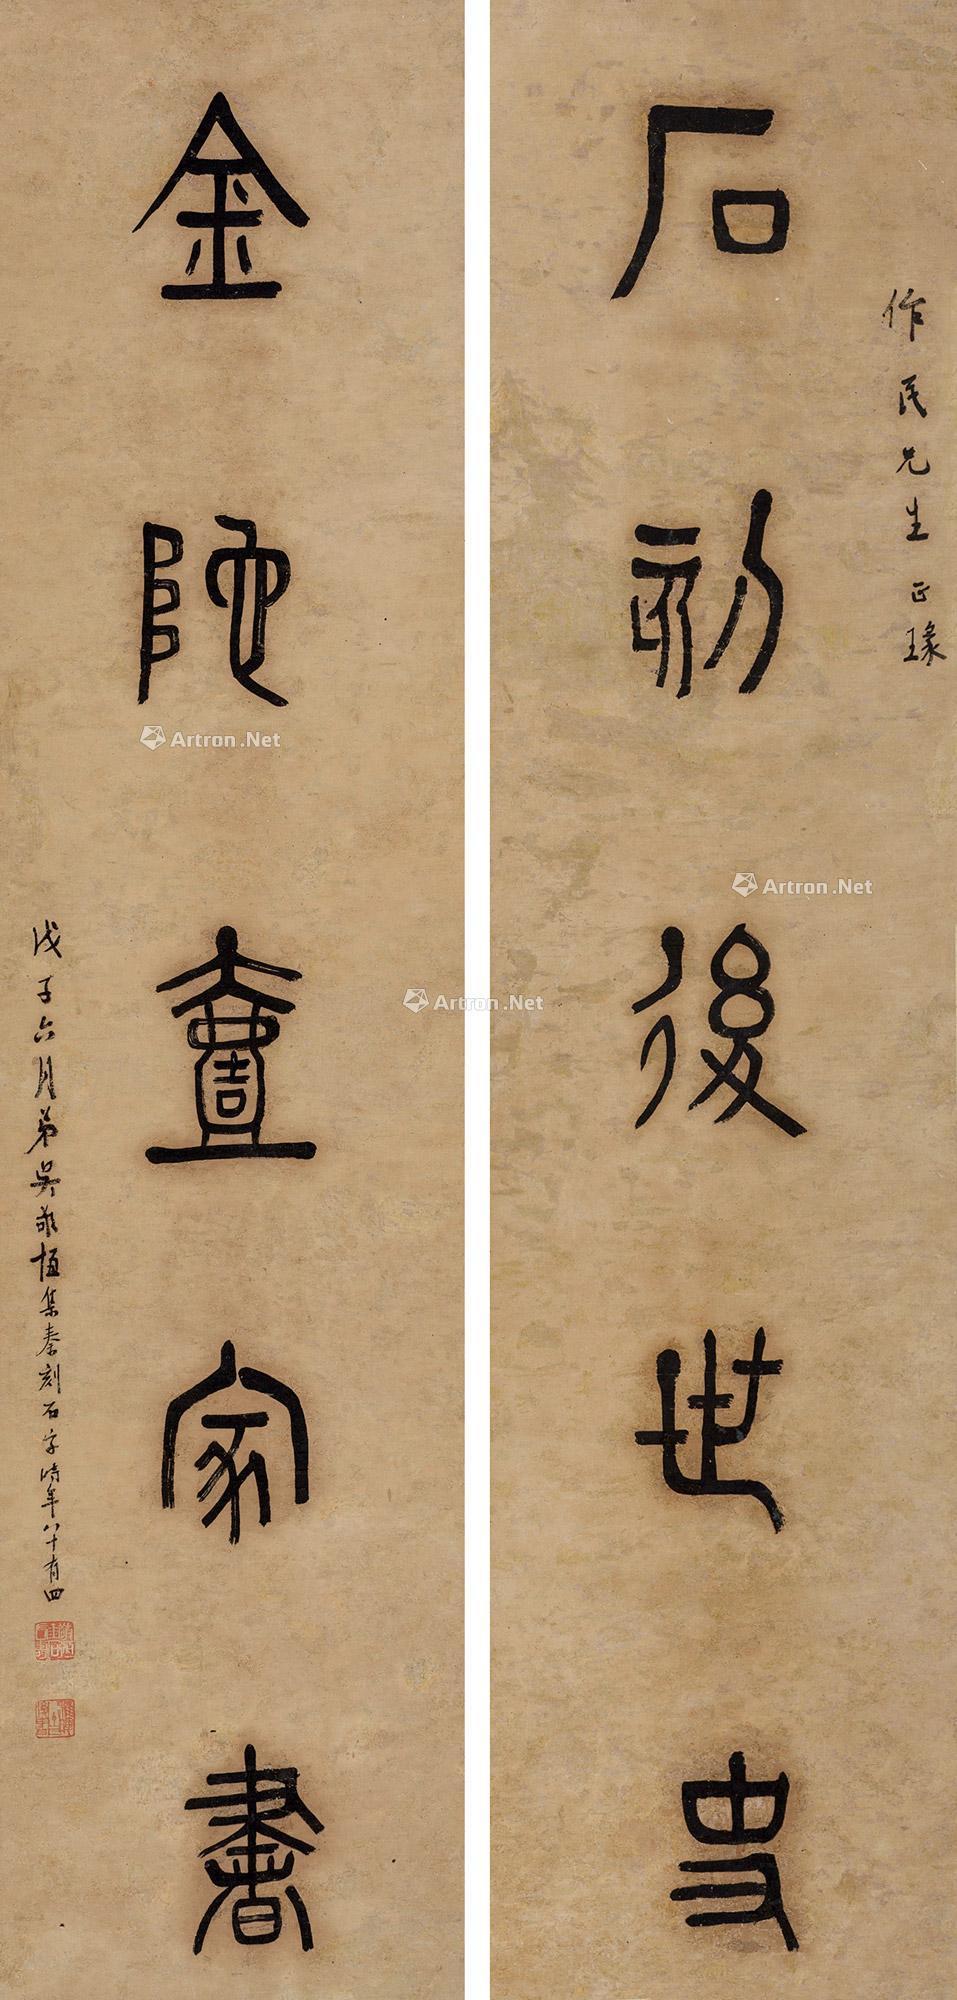 作民先生正瑑
石刻後世史
金阤壹家書
戊子六月弟吳敬恆集秦刻石字時年八十有四
Artron.Net
Artron.Net
Artron.Net